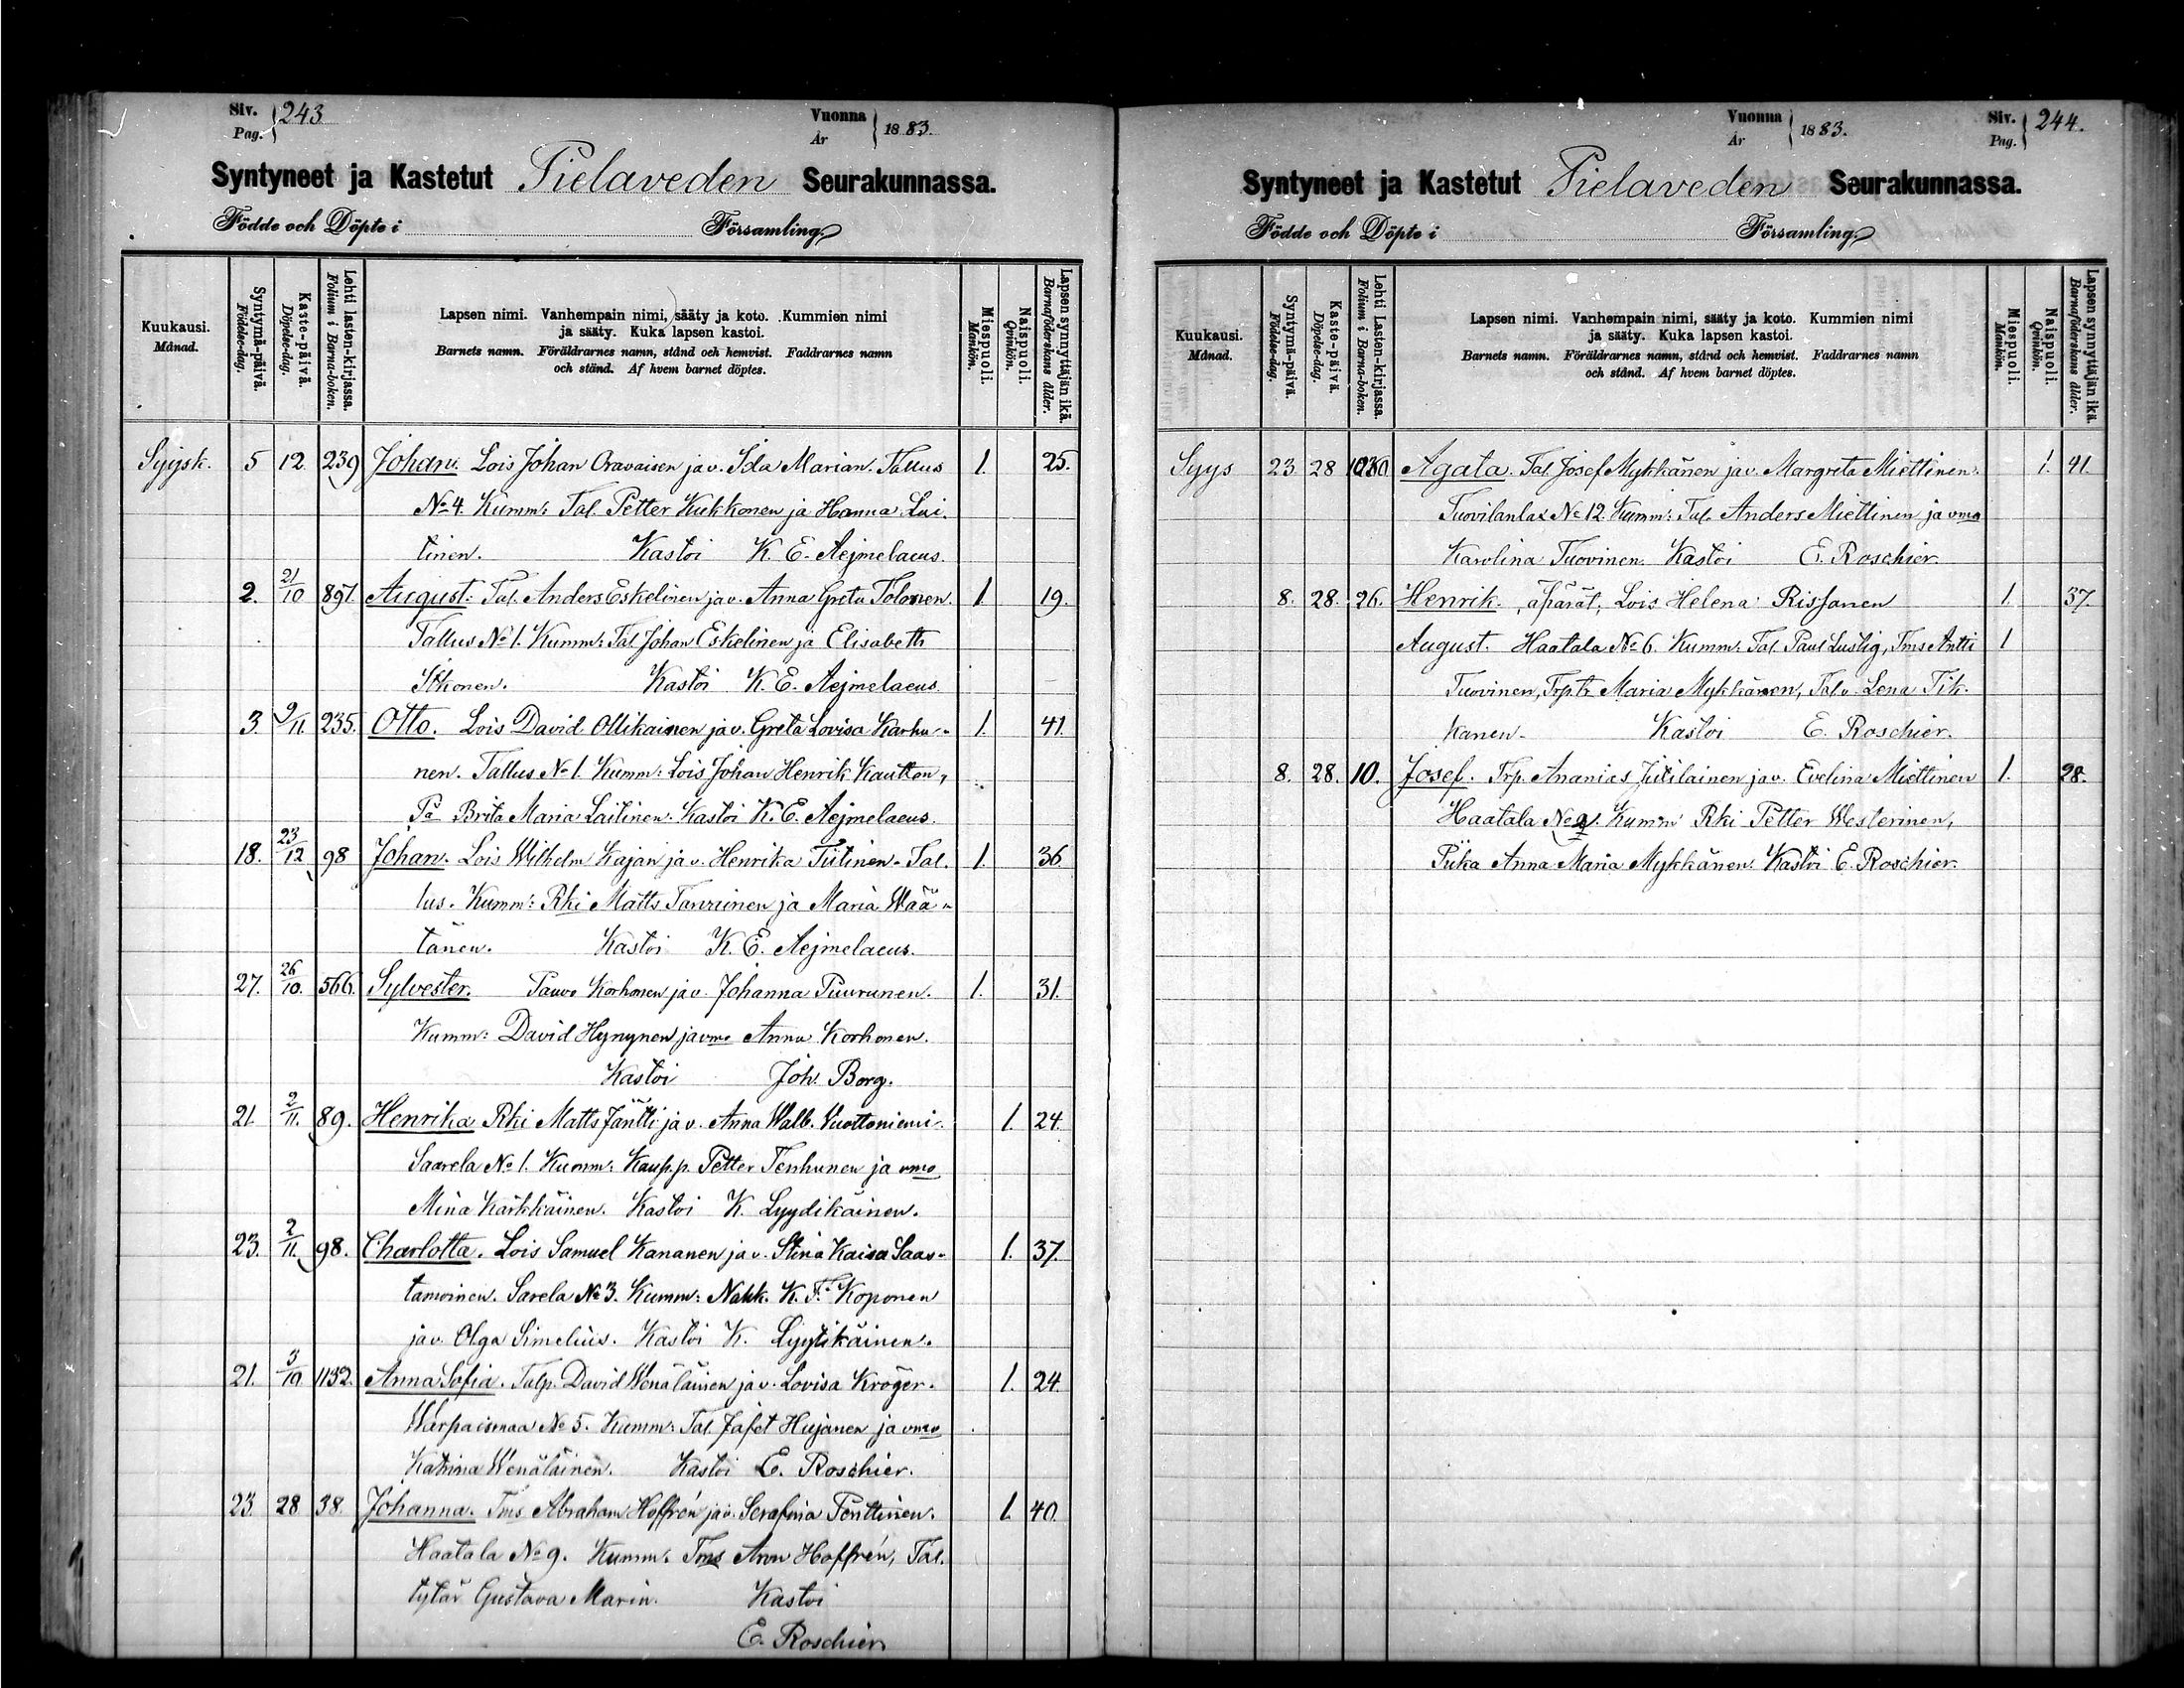 Siv. Pag. 243
Vuonna År 1883.
Syntyneet ja Kastetut Pielaveden Seurakunnassa.
Födde och Döpte i Församling
Kuukausi. Månad.
Syntymä-päivä. Födelse-dag.
Kaste-päivä. Döpelse-dag.
Lehti lasten-kirjassa. Folium i Barna-boken.
Lapsen nimi. Vanhempain nimi, sääty ja koto. Kummien nimi
ja sääty. Kuka lapsen kastoi.
Barnets namn. Föräldrarnes namn, stånd och hemvist. Faddrarnes namn
och stånd. Af hvem barnet döptes.
Miespuoli. Mankön.
Naispuoli. Qvinkön.
Lapsen synnyttäjän ikä. Barnaföderskans ålder.
Syysk. 5 12. 239 Johan. Lois Johan Oravaisen ja v. Ida Marian. Tallus 1. 25.
No 4. Kumm: Tal. Petter Kukkonen ja Hanna Lai.
tinen. Kastoi K. E. Aejmelaeus.
2. 21/10 897. August. Tal. Anders Eskelinen ja v. Anna Greta Tolonen. 1. 19.
Tallus No 1. Kumm: Tal. Johan Eskelinen ja Elisabeth
Itkonen. Kastoi K. E. Aejmelaeus.
3. 9/11. 235. Otto. Lois David Ollikainen ja v. Greta Lovisa Karhu- 1. 41.
nen. Tallus No 1. Kumm: Lois Johan Henrik Kautton,
Pa Brita Maria Laitinen. Kastoi K. E. Aejmelaeus.
18. 23/12 98 Johan. Lois Wilhelm Kajan ja v. Henrika Tiitinen. Tal. 1. 36.
lus. Kumm: Rki Matts Tarvainen ja Maria Wää-
tänen. Kastoi K. E. Aejmelaeus.
27. 26/10. 566. Sylvester. Paavo Korhonen ja v. Johanna Puurunen. 1. 31.
Kumm: David Hynynen ja vmo Anna Korhonen.
Kastoi Joh. Borg.
21. 2/11. 89. Henrika Rki Matts Jäntti ja v. Anna Walb. Vuottoniemi. 1. 24.
Saarela No 1. Kumm: Kaup.p. Petter Tenhunen ja vmo
Mina Kärkkäinen. Kastoi K. Lyydikäinen.
23. 2/11. 98. Charlotta. Lois Samuel Kananen ja v. Stina Kaisa Saas- 1. 37.
tamoinen. Sarela No 3. Kumm: Nahk. K. F. Koponen
ja v. Olga Simelius. Kastoi K. Lyytikäinen.
21. 3/10 1132. Anna Sofia. Talp. David Wenäläinen ja v. Lovisa Kröger. 1. 24.
Warpaismaa No 5. Kumm: Tal. Jafet Hujanen ja vmo
Katrina Wenäläinen. Kastoi E. Roschier.
23. 28 38. Johanna. Tms Abraham Hoffrén ja v. Serafina Penttinen. 1. 40.
Haatala No 9. Kumm: Tms Aron Hoffrén, Tal.
tytär Gustava Marin. Kastoi
E. Roschier
Vuonna År 1883.
Siv. Pag. 244.
Syntyneet ja Kastetut Pielaveden Seurakunnassa.
Födde och Döpte i Församling
Kuukausi. Månad.
Syntymä-päivä. Födelse-dag.
Kaste-päivä. Döpelse-dag.
Lehti Lasten-kirjassa. Folium i Barna-boken.
Lapsen nimi. Vanhempain nimi, sääty ja koto. Kummien nimi
ja sääty. Kuka lapsen kastoi.
Barnets namn. Föräldrarnes namn, stånd och hemvist. Faddrarnes namn
och stånd. Af hvem barnet döptes.
Miespuoli. Mankön.
Naispuoli. Qvinkön.
Lapsen synnyttäjän ikä. Barnaföderskans ålder.
Syys 23 28 Agata. Tal. Josef Mykkänen ja v. Margreta Miettinen. 1. 41.
Tuovilanlax No 12. Kumm: Tal. Anders Miettinen ja vmo
Karolina Tuovinen. Kastoi E. Roschier.
8. 28. 26. Henrik. äpärät, Lois Helena Rissanen 1. 37.
August. Haatala No 6. Kumm: Tal. Paul Lustig, Tms Antti 1
Tuovinen, Trp.tr Maria Mykkänen, Tal.v. Lena Tik.
kanen. Kastoi E. Roschier.
8. 28. 10. Josef. Trp. Ananias Jutilainen ja v. Evelina Miettinen 1. 28.
Haatala No 2. Kumm Rki Petter Westerinen,
Piika Anna Maria Mykkänen. Kastoi E. Roschier.